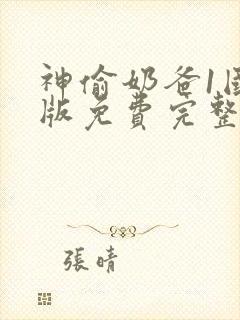 神偷奶爸1国
版免费完整
張晴